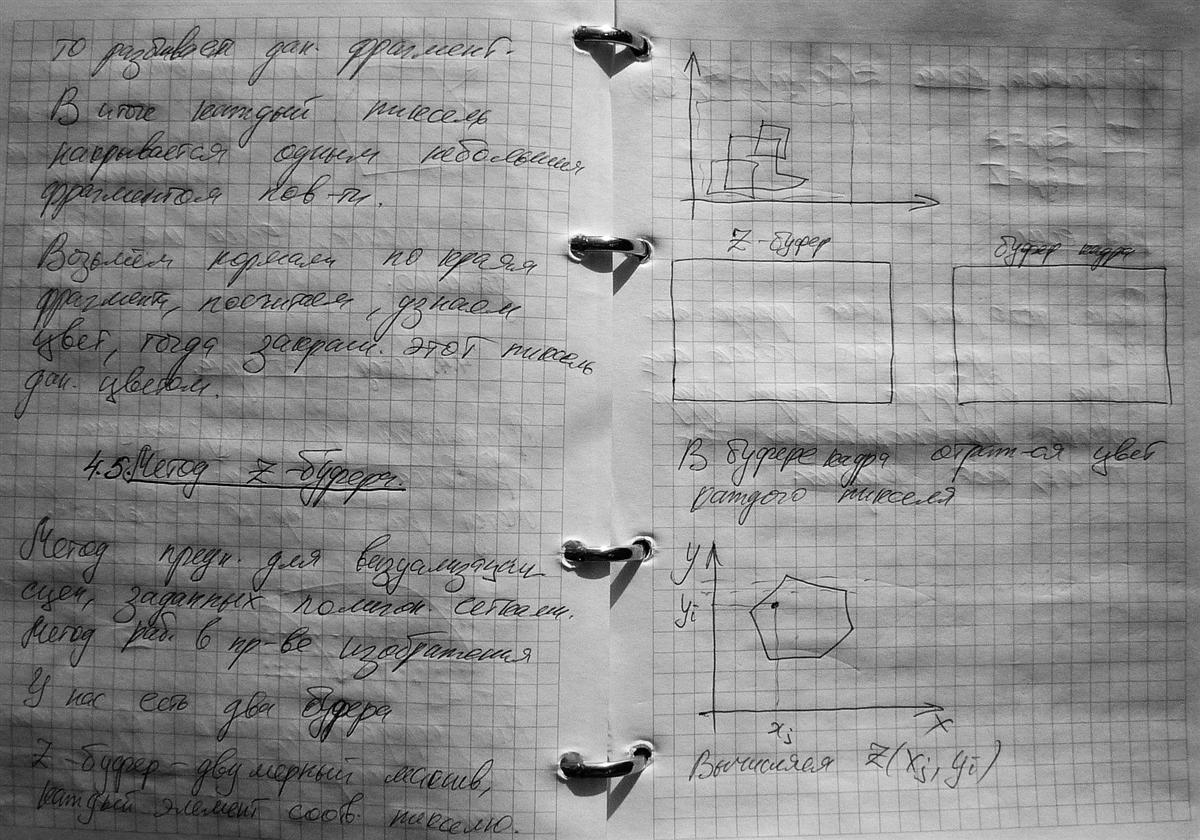 то разбивает дан. фрагмент.
В итоге каждый пиксель
накрывается одним небольшим
фрагментом пов-ти.
Возьмём нормали по краям
фрагмента, посчитаем, узнаем
цвет, тогда закраш. этот пиксель
дан. цветом.
4.5. Метод Z-буфера.
Метод предн. для визуализации
сцен, заданных полигон сетками.
Метод раб. в пр-ве изображения
У нас есть два буфера
Z-буфер - двумерный массив,
каждый элемент соотв. пикселю.
Z-буфер
буфер кадра
В буфере кадра отраж-ся цвет
каждого пикселя
y
yi
xj
x
Вычисляем Z(xj, yi)